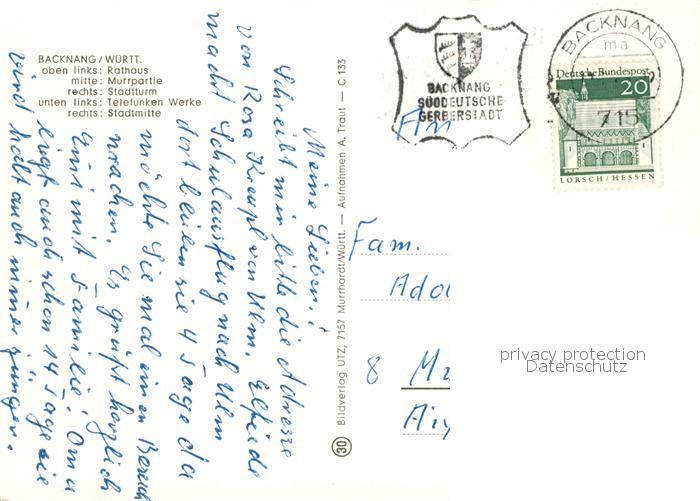 BACKNANG / WÜRTT.
oben links: Rathaus
mitte: Murrpartie
rechts: Stadtturm
unten links: Telefunken Werke
rechts: Stadtmitte
Meine Lieben!
Schreibt mir bitte die Adresse
von Rosa Krempl von Ulm. Elfride
macht Schulausflug nach Ulm
dort bleiben sie 4 Tage da
möchte Sie mal einen Besuch
machen. Es grüßt herzlich
Emi mit Familie! Oma
liegt auch schon 14 Tage sie
wird halt auch nimmer jünger.
Bildverlag UTZ, 7157 Murrhardt/Württ. — Aufnahmen A. Traut — C 133
30
BACKNANG
SÜDDEUTSCHE
GERBERSTADT
BACKNANG
ma
715
Deutsche Bundespost
20
LORSCH / HESSEN
An
Fam.
Ado
8 Mü
privacy protection
Datenschutz